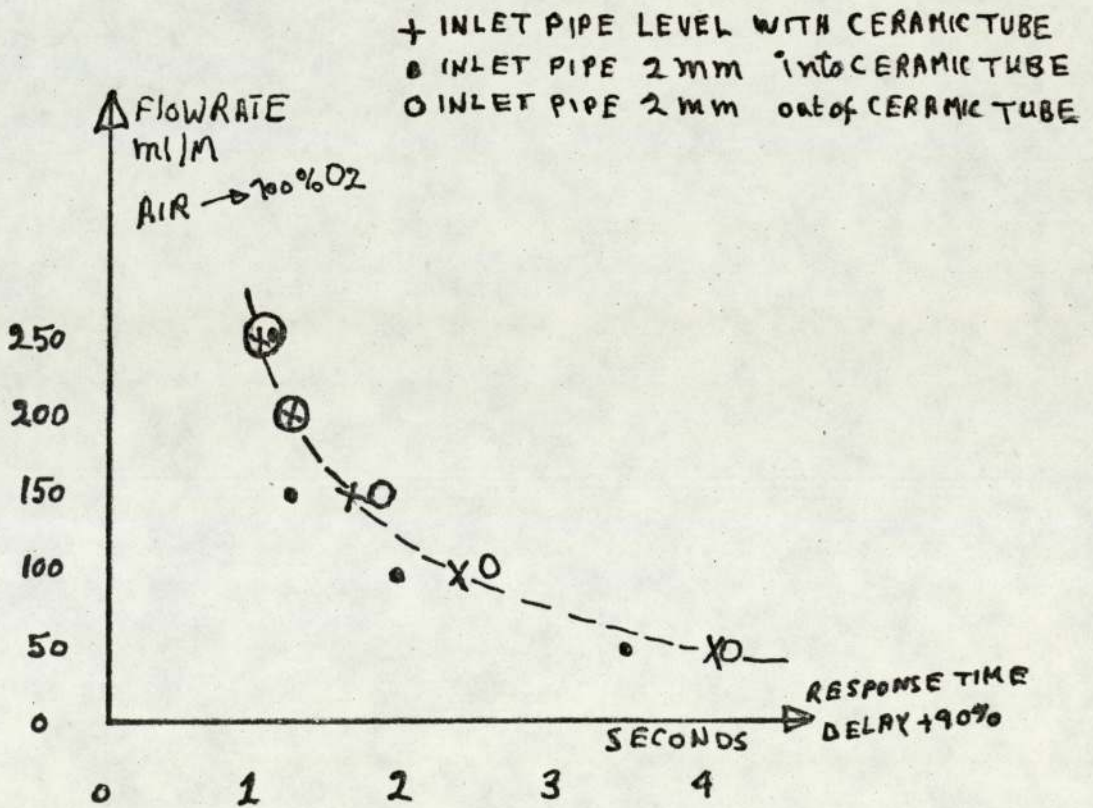 + INLET PIPE LEVEL WITH CERAMIC TUBE
• INLET PIPE 2mm into CERAMIC TUBE
O INLET PIPE 2mm out of CERAMIC TUBE
FLOWRATE
ml/M
AIR → 100% O2
250
200
150
100
50
0
RESPONSE TIME
DELAY +90%
SECONDS
0 1 2 3 4